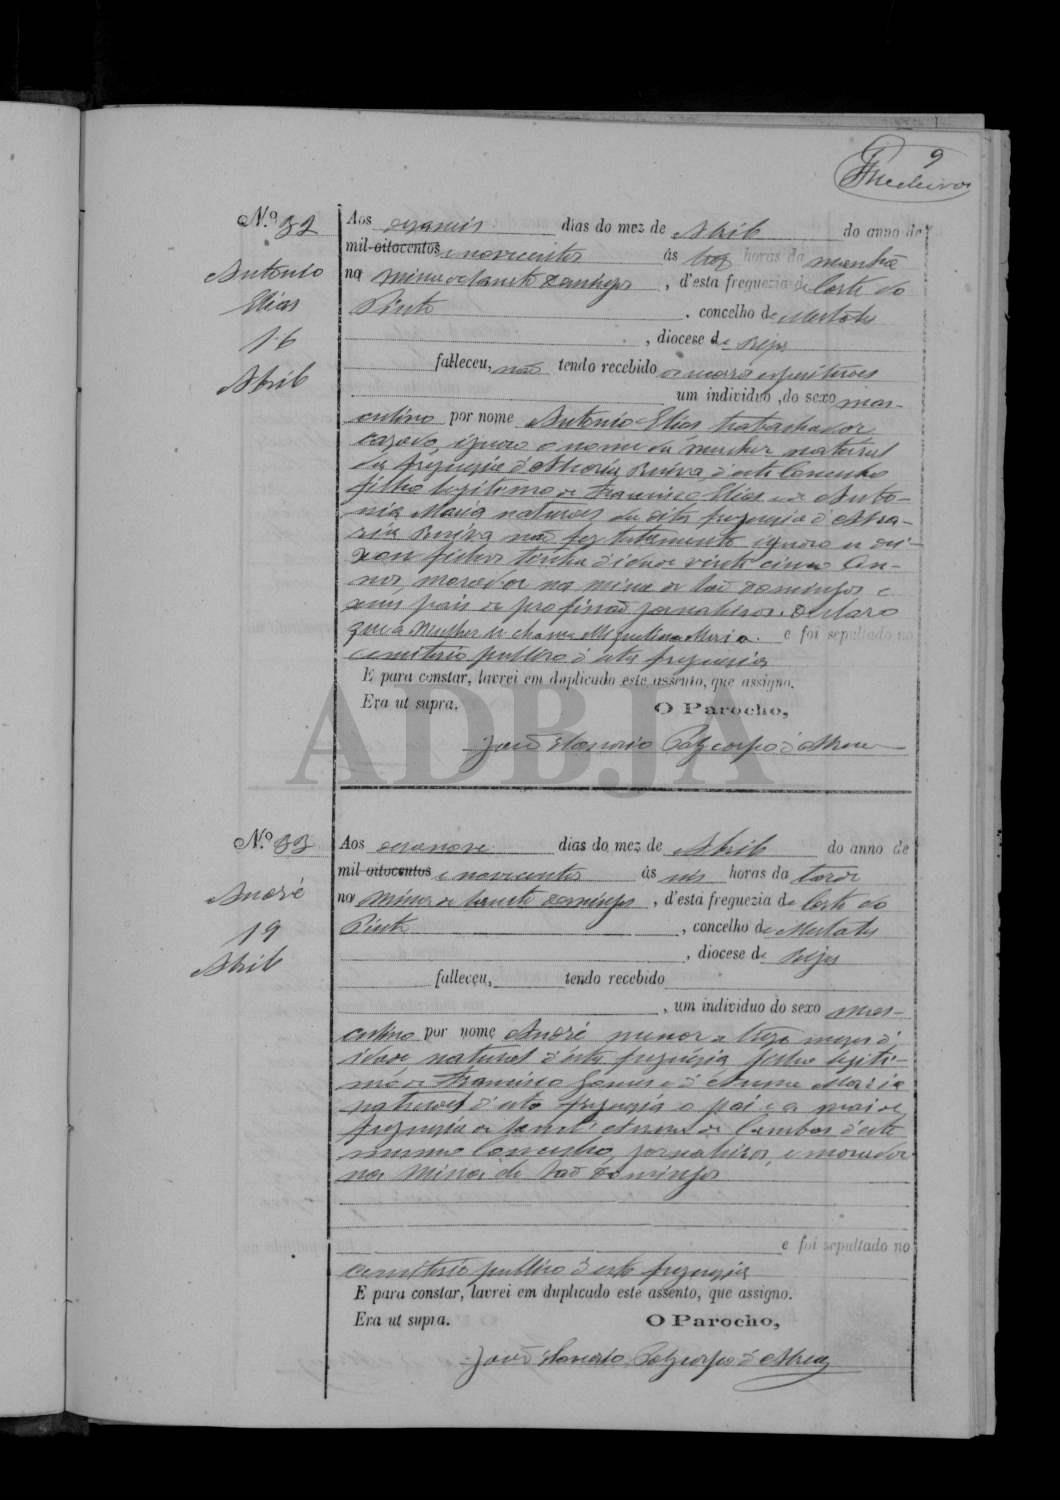 9
Medeiros
N.º 32
Antonio
Elias
16
Abril
Aos dezaseis dias do mez de Abril do anno de
mil oitocentos e novecentos ás tres horas da manhã
na Mina de Sam Domingos, d'esta freguezia de Corte do
Pinto, concelho de Mertola
, diocese de Beja
falleceu, não tendo recebido os
um individuo, do sexo mas-
culino por nome Antonio Elias trabalhador
cazado, ignoro o nome da mulher natural
da freguezia d' d'este Concelho
filho legitimo de Francisco Elias e de Anto-
nia Maria naturaes da dita freguezia d'
não fez testamento ignoro se dei-
xou filhos tinha d'idade vinte cinco an-
nos, morador na mina de São Domingos e
seus pais de profissão jornaleiros. Declaro
que a Mulher se chama Maria. e foi sepultado no
cemiterio publico d'esta freguezia
E para constar, lavrei em duplicado este assento, que assigno.
Era ut supra.
O Parocho,
João Polycarpo d'Abreu
ADBJA
N.º 33
André
19
Abril
Aos dezanove dias do mez de Abril do anno de
mil oitocentos e novecentos ás seis horas da tarde
na Mina de Sam Domingos, d'esta freguezia de Corte do
Pinto, concelho de Mertola
, diocese de Beja
falleceu, tendo recebido
, um individuo do sexo mas-
culino por nome André menor de treze mezes d'
idade natural d'esta freguezia filho legiti-
mo de Francisco Gomes e d' Maria
naturaes d'esta freguezia o pai e a mai da
freguezia de de Cambas d'este
mesmo Concelho, jornaleiros, e morador
na Mina de São Domingos
e foi sepultado no
cemiterio publico d'esta freguezia
E para constar, lavrei em duplicado este assento, que assigno.
Era ut supra.
O Parocho,
João Polycarpo d'Abreu